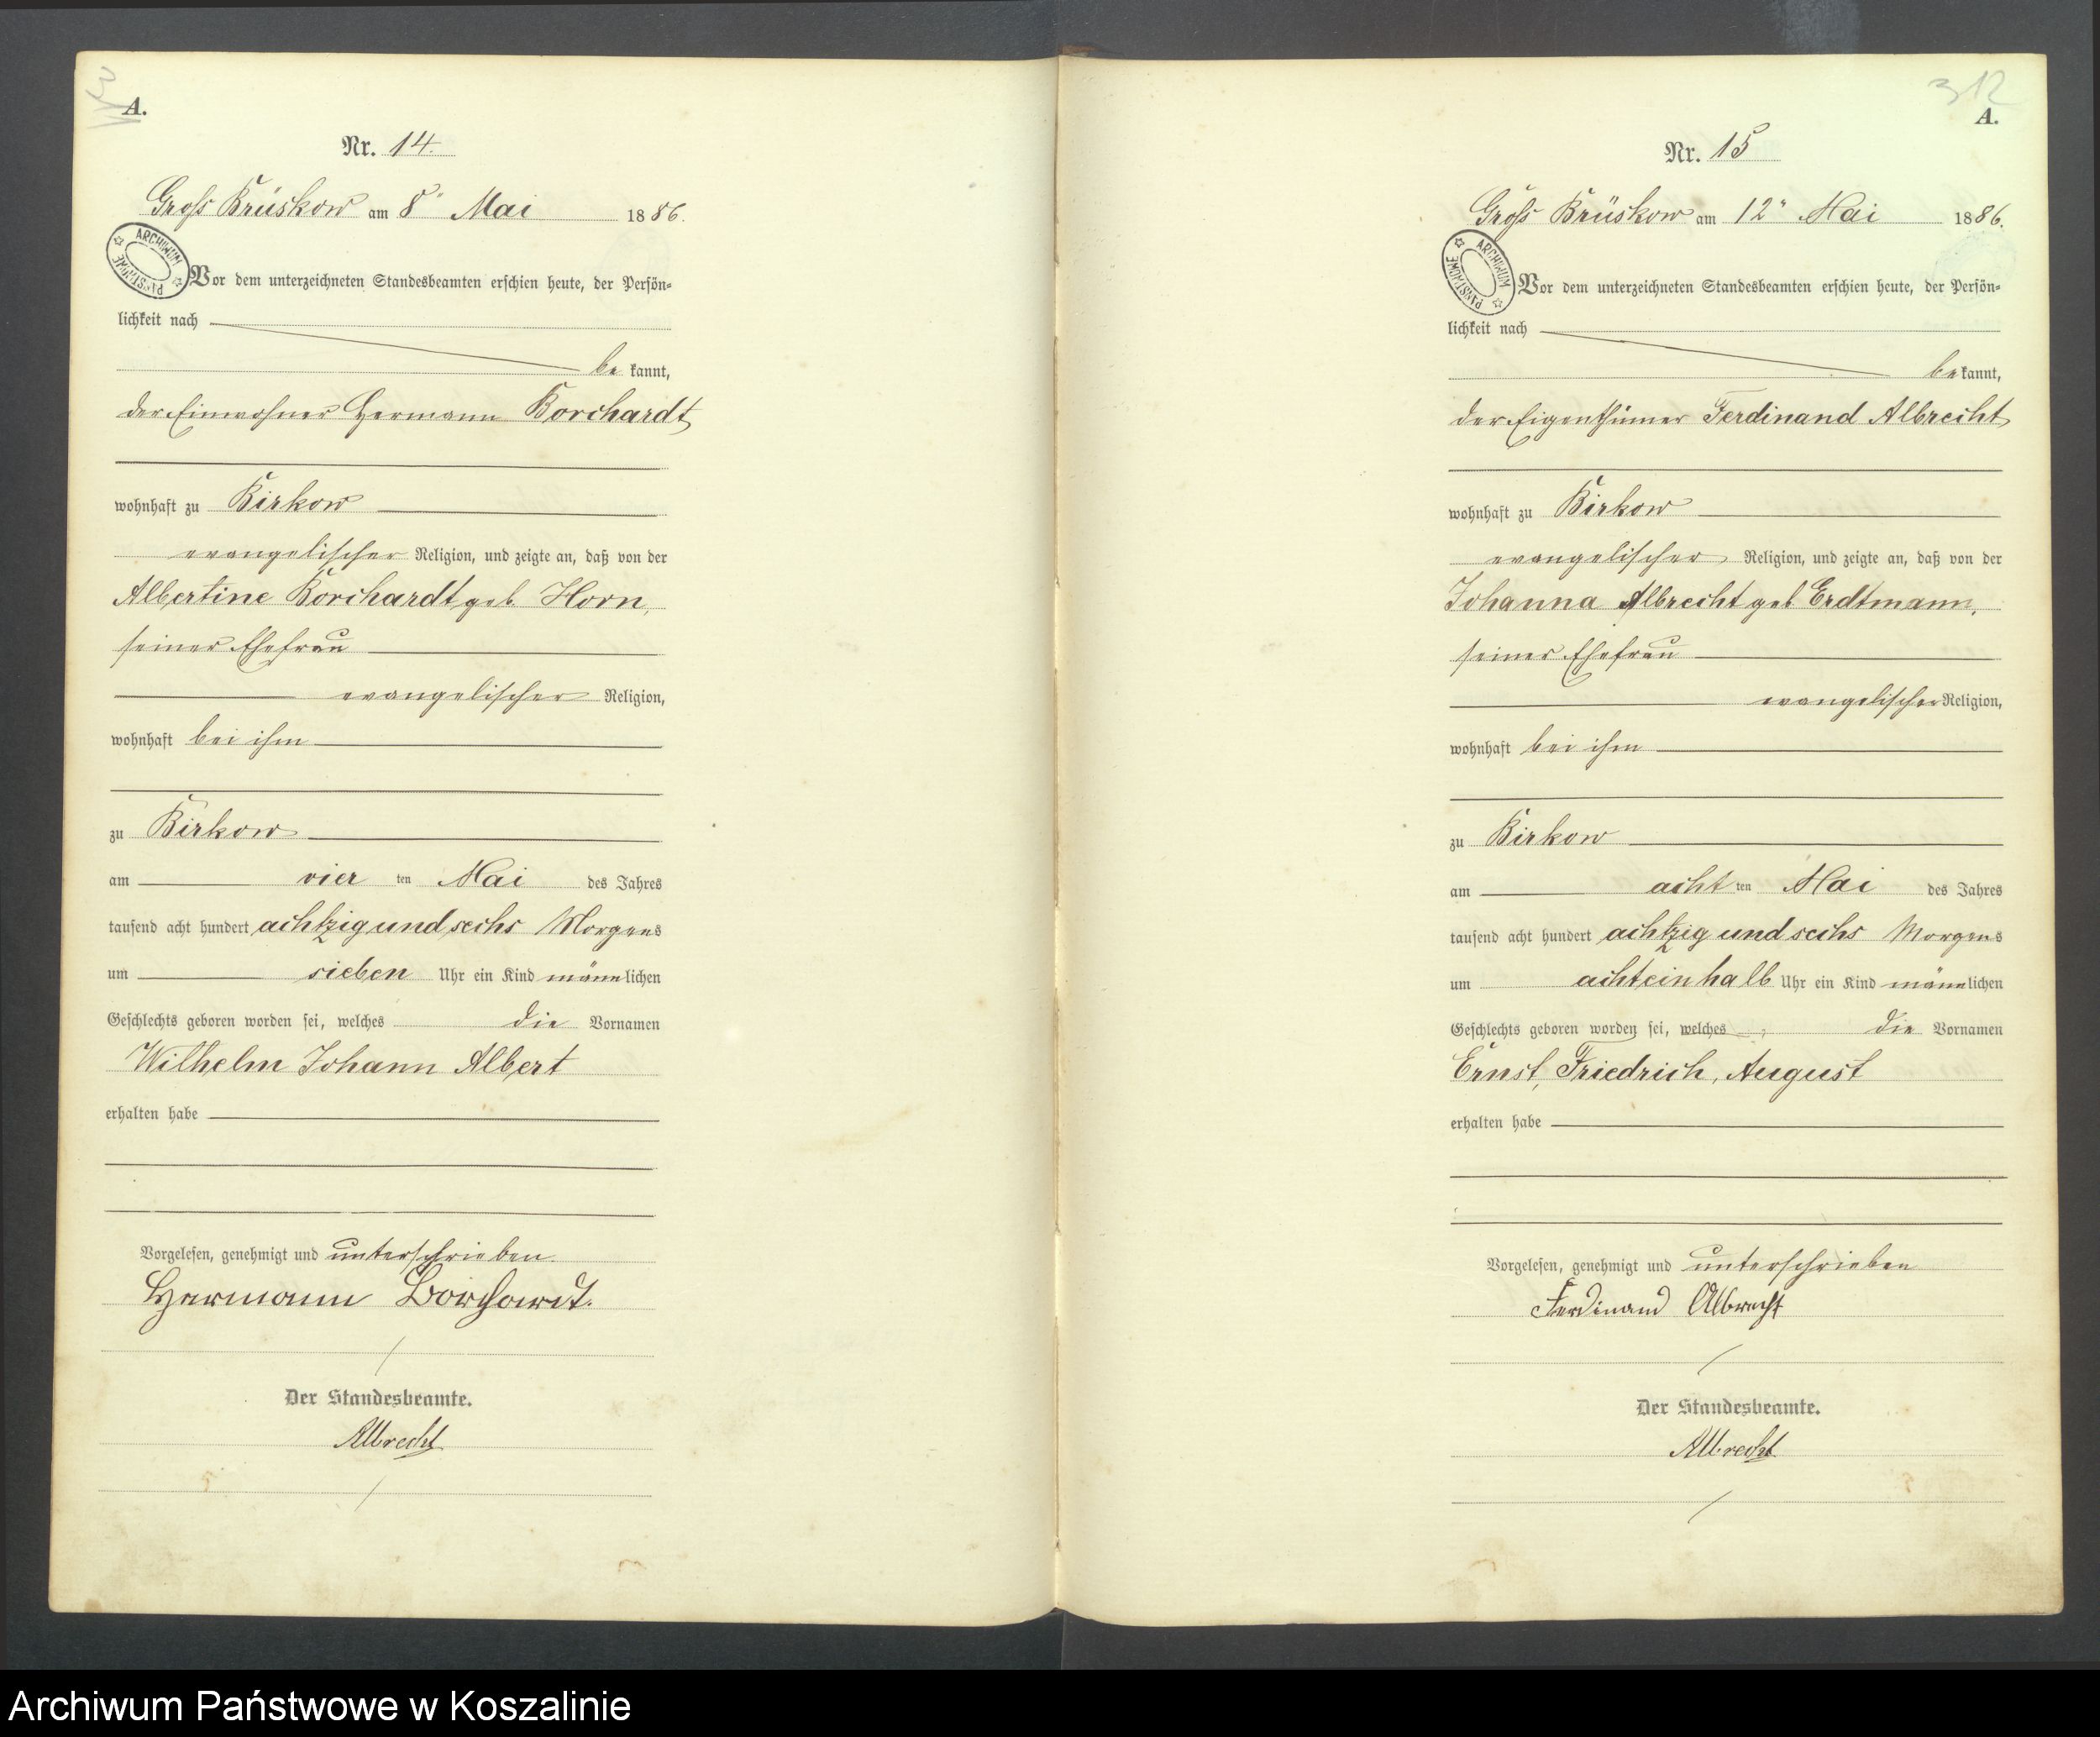 A.
Nr. 14.
Gross Brüskow am 8" Mai 1886.
ARCHIWUM PAŃSTWOWE
Vor dem unterzeichneten Standesbeamten erschien heute, der Persön-
lichkeit nach
be kannt,
der Einwohner Hermann Borchardt
wohnhaft zu Birkow
evangelischer Religion, und zeigte an, daß von der
Albertine Borchardt geb. Horn,
seiner Ehefrau
evangelischer Religion,
wohnhaft bei ihm
zu Birkow
am vier ten Mai des Jahres
tausend acht hundert achtzig und sechs Morgens
um sieben Uhr ein Kind männlichen
Geschlechts geboren worden sei, welches die Vornamen
Wilhelm Johann Albert
erhalten habe
Vorgelesen, genehmigt und unterschrieben.
Hermann Borchardt.
Der Standesbeamte.
Albrecht
312
A.
Nr. 15
Gross Brüskow am 12" Mai 1886.
ARCHIWUM PAŃSTWOWE
Vor dem unterzeichneten Standesbeamten erschien heute, der Persön-
lichkeit nach
bekannt,
der Eigenthümer Ferdinand Albrecht
wohnhaft zu Birkow
evangelischer Religion, und zeigte an, daß von der
Johanna Albrecht geb Erdtmann,
seiner Ehefrau
evangelischer Religion,
wohnhaft bei ihm
zu Birkow
am acht ten Mai des Jahres
tausend acht hundert achtzig und sechs Morgens
um achteinhalb Uhr ein Kind männlichen
Geschlechts geboren worden sei, welches die Vornamen
Ernst, Friedrich, August
erhalten habe
Vorgelesen, genehmigt und unterschrieben
Ferdinand Albrecht
Der Standesbeamte.
Albrecht
Archiwum Państwowe w Koszalinie